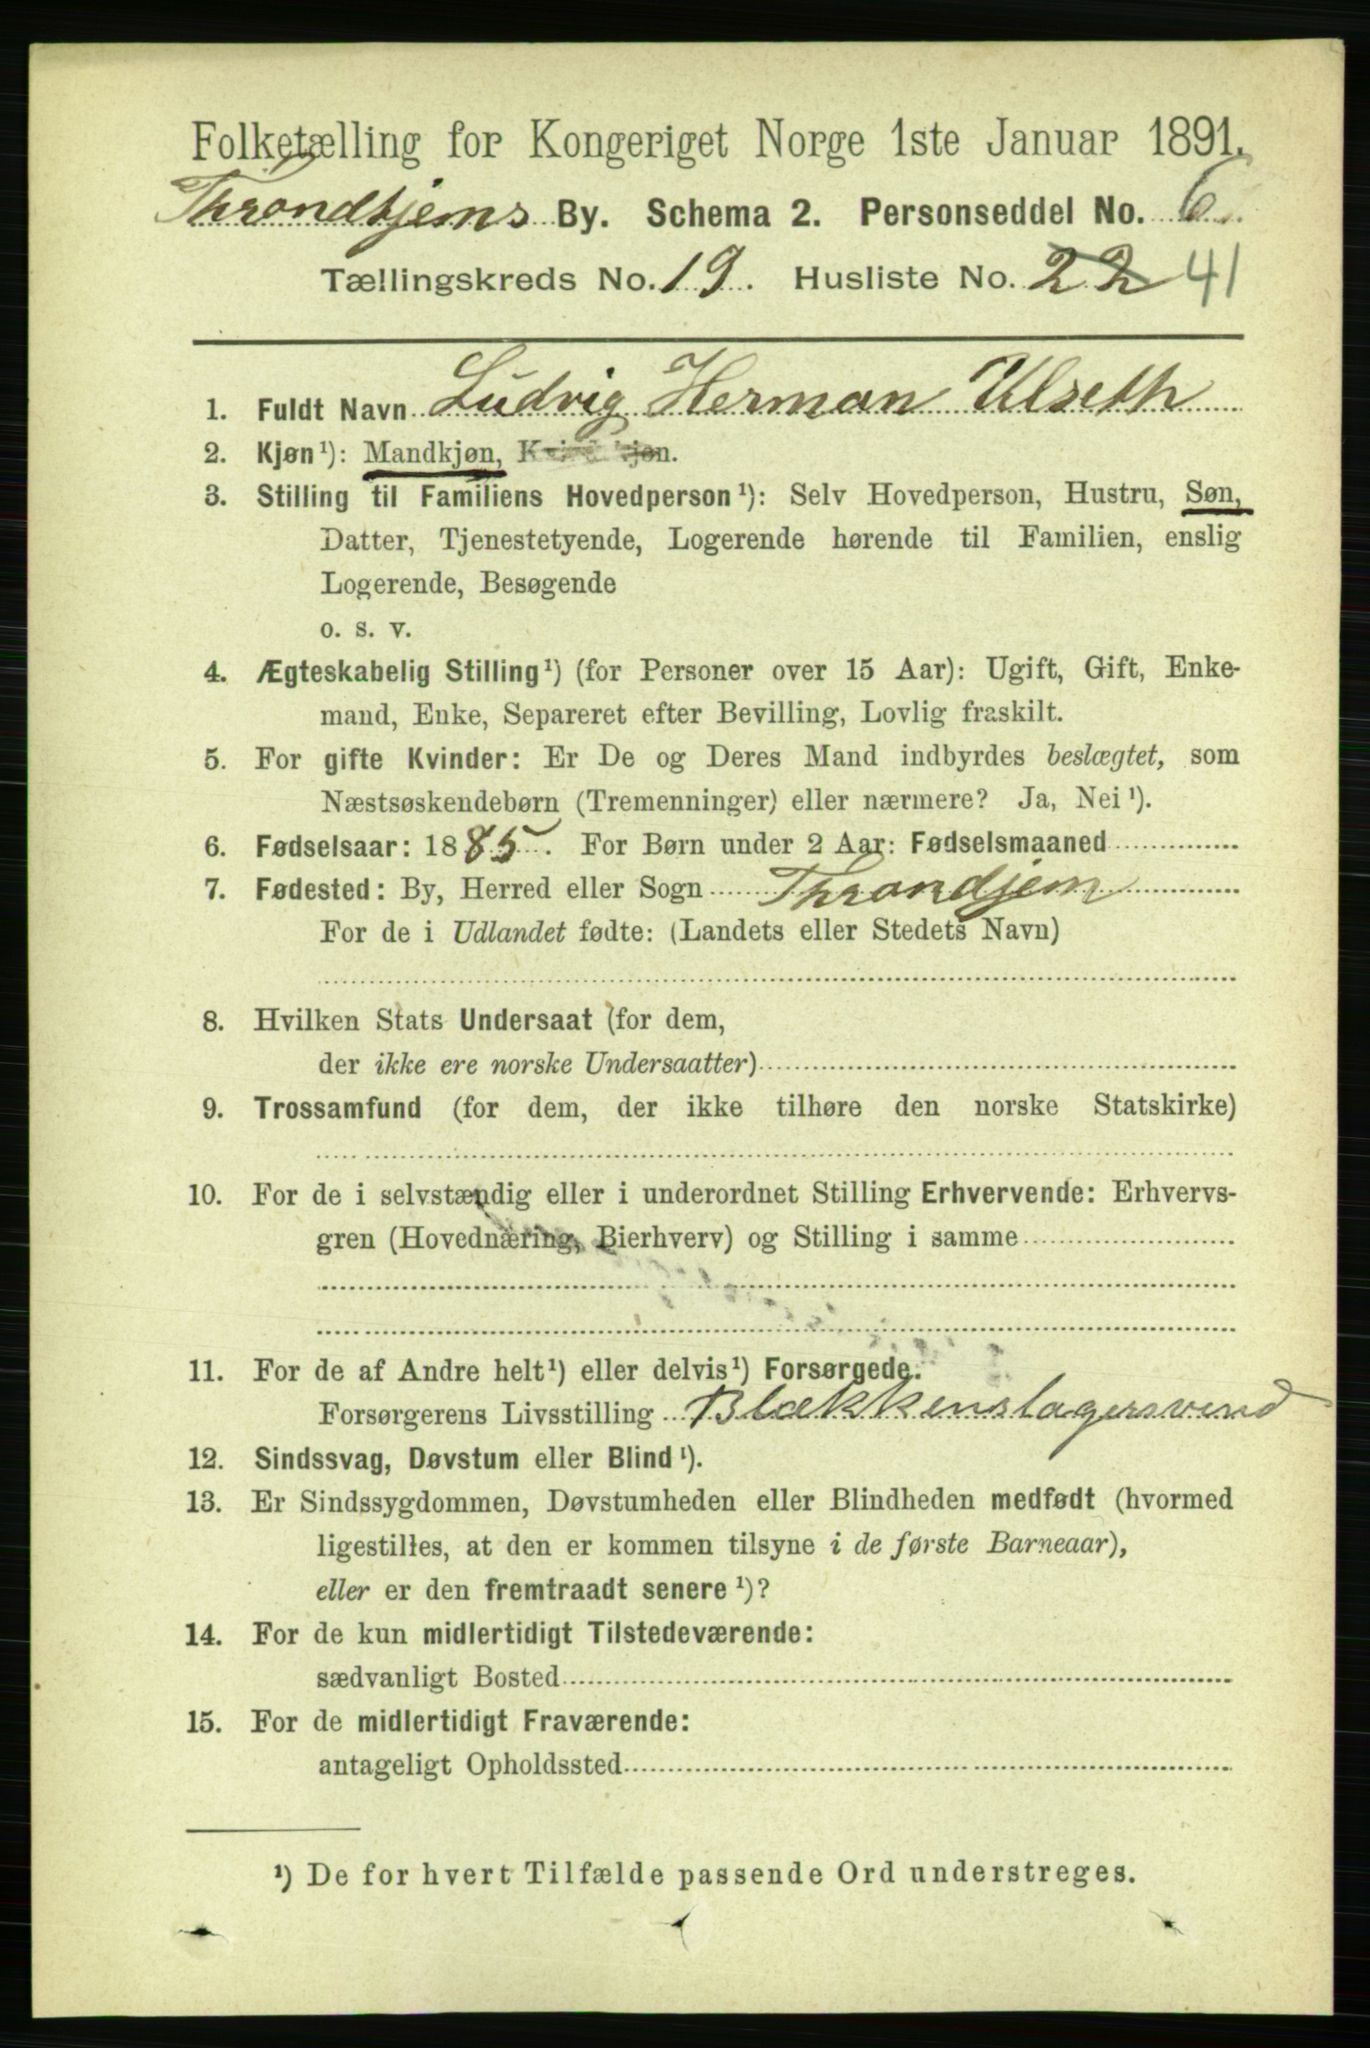 Folketælling for Kongeriget Norge 1ste Januar 1891.
Throndtjems By. Schema 2. Personseddel No. 6.
Tællingskreds No. 19. Husliste No. 22 41
1. Fuldt Navn Ludvig Herman Ulseth
2. Kjøn¹): Mandkjøn, Kvindekjøn.
3. Stilling til Familiens Hovedperson¹): Selv Hovedperson, Hustru, Søn,
Datter, Tjenestetyende, Logerende hørende til Familien, enslig
Logerende, Besøgende
o. s. v.
4. Ægteskabelig Stilling¹) (for Personer over 15 Aar): Ugift, Gift, Enke-
mand, Enke, Separeret efter Bevilling, Lovlig fraskilt.
5. For gifte Kvinder: Er De og Deres Mand indbyrdes beslægtet, som
Næstsøskendebørn (Tremenninger) eller nærmere? Ja, Nei¹).
6. Fødselsaar: 1885. For Børn under 2 Aar: Fødselsmaaned
7. Fødested: By, Herred eller Sogn Throndjem
For de i Udlandet fødte: (Landets eller Stedets Navn)
8. Hvilken Stats Undersaat (for dem,
der ikke ere norske Undersaatter)
9. Trossamfund (for dem, der ikke tilhøre den norske Statskirke)
10. For de i selvstændig eller i underordnet Stilling Erhvervende: Erhvervs-
gren (Hovednæring, Bierhverv) og Stilling i samme
11. For de af Andre helt¹) eller delvis¹) Forsørgede.
Forsørgerens Livsstilling Blækkenslagersvend
12. Sindssvag, Døvstum eller Blind¹).
13. Er Sindssygdommen, Døvstumheden eller Blindheden medfødt (hvormed
ligestilles, at den er kommen tilsyne i de første Barneaar),
eller er den fremtraadt senere¹)?
14. For de kun midlertidigt Tilstedeværende:
sædvanligt Bosted
15. For de midlertidigt Fraværende:
antageligt Opholdssted
¹) De for hvert Tilfælde passende Ord understreges.